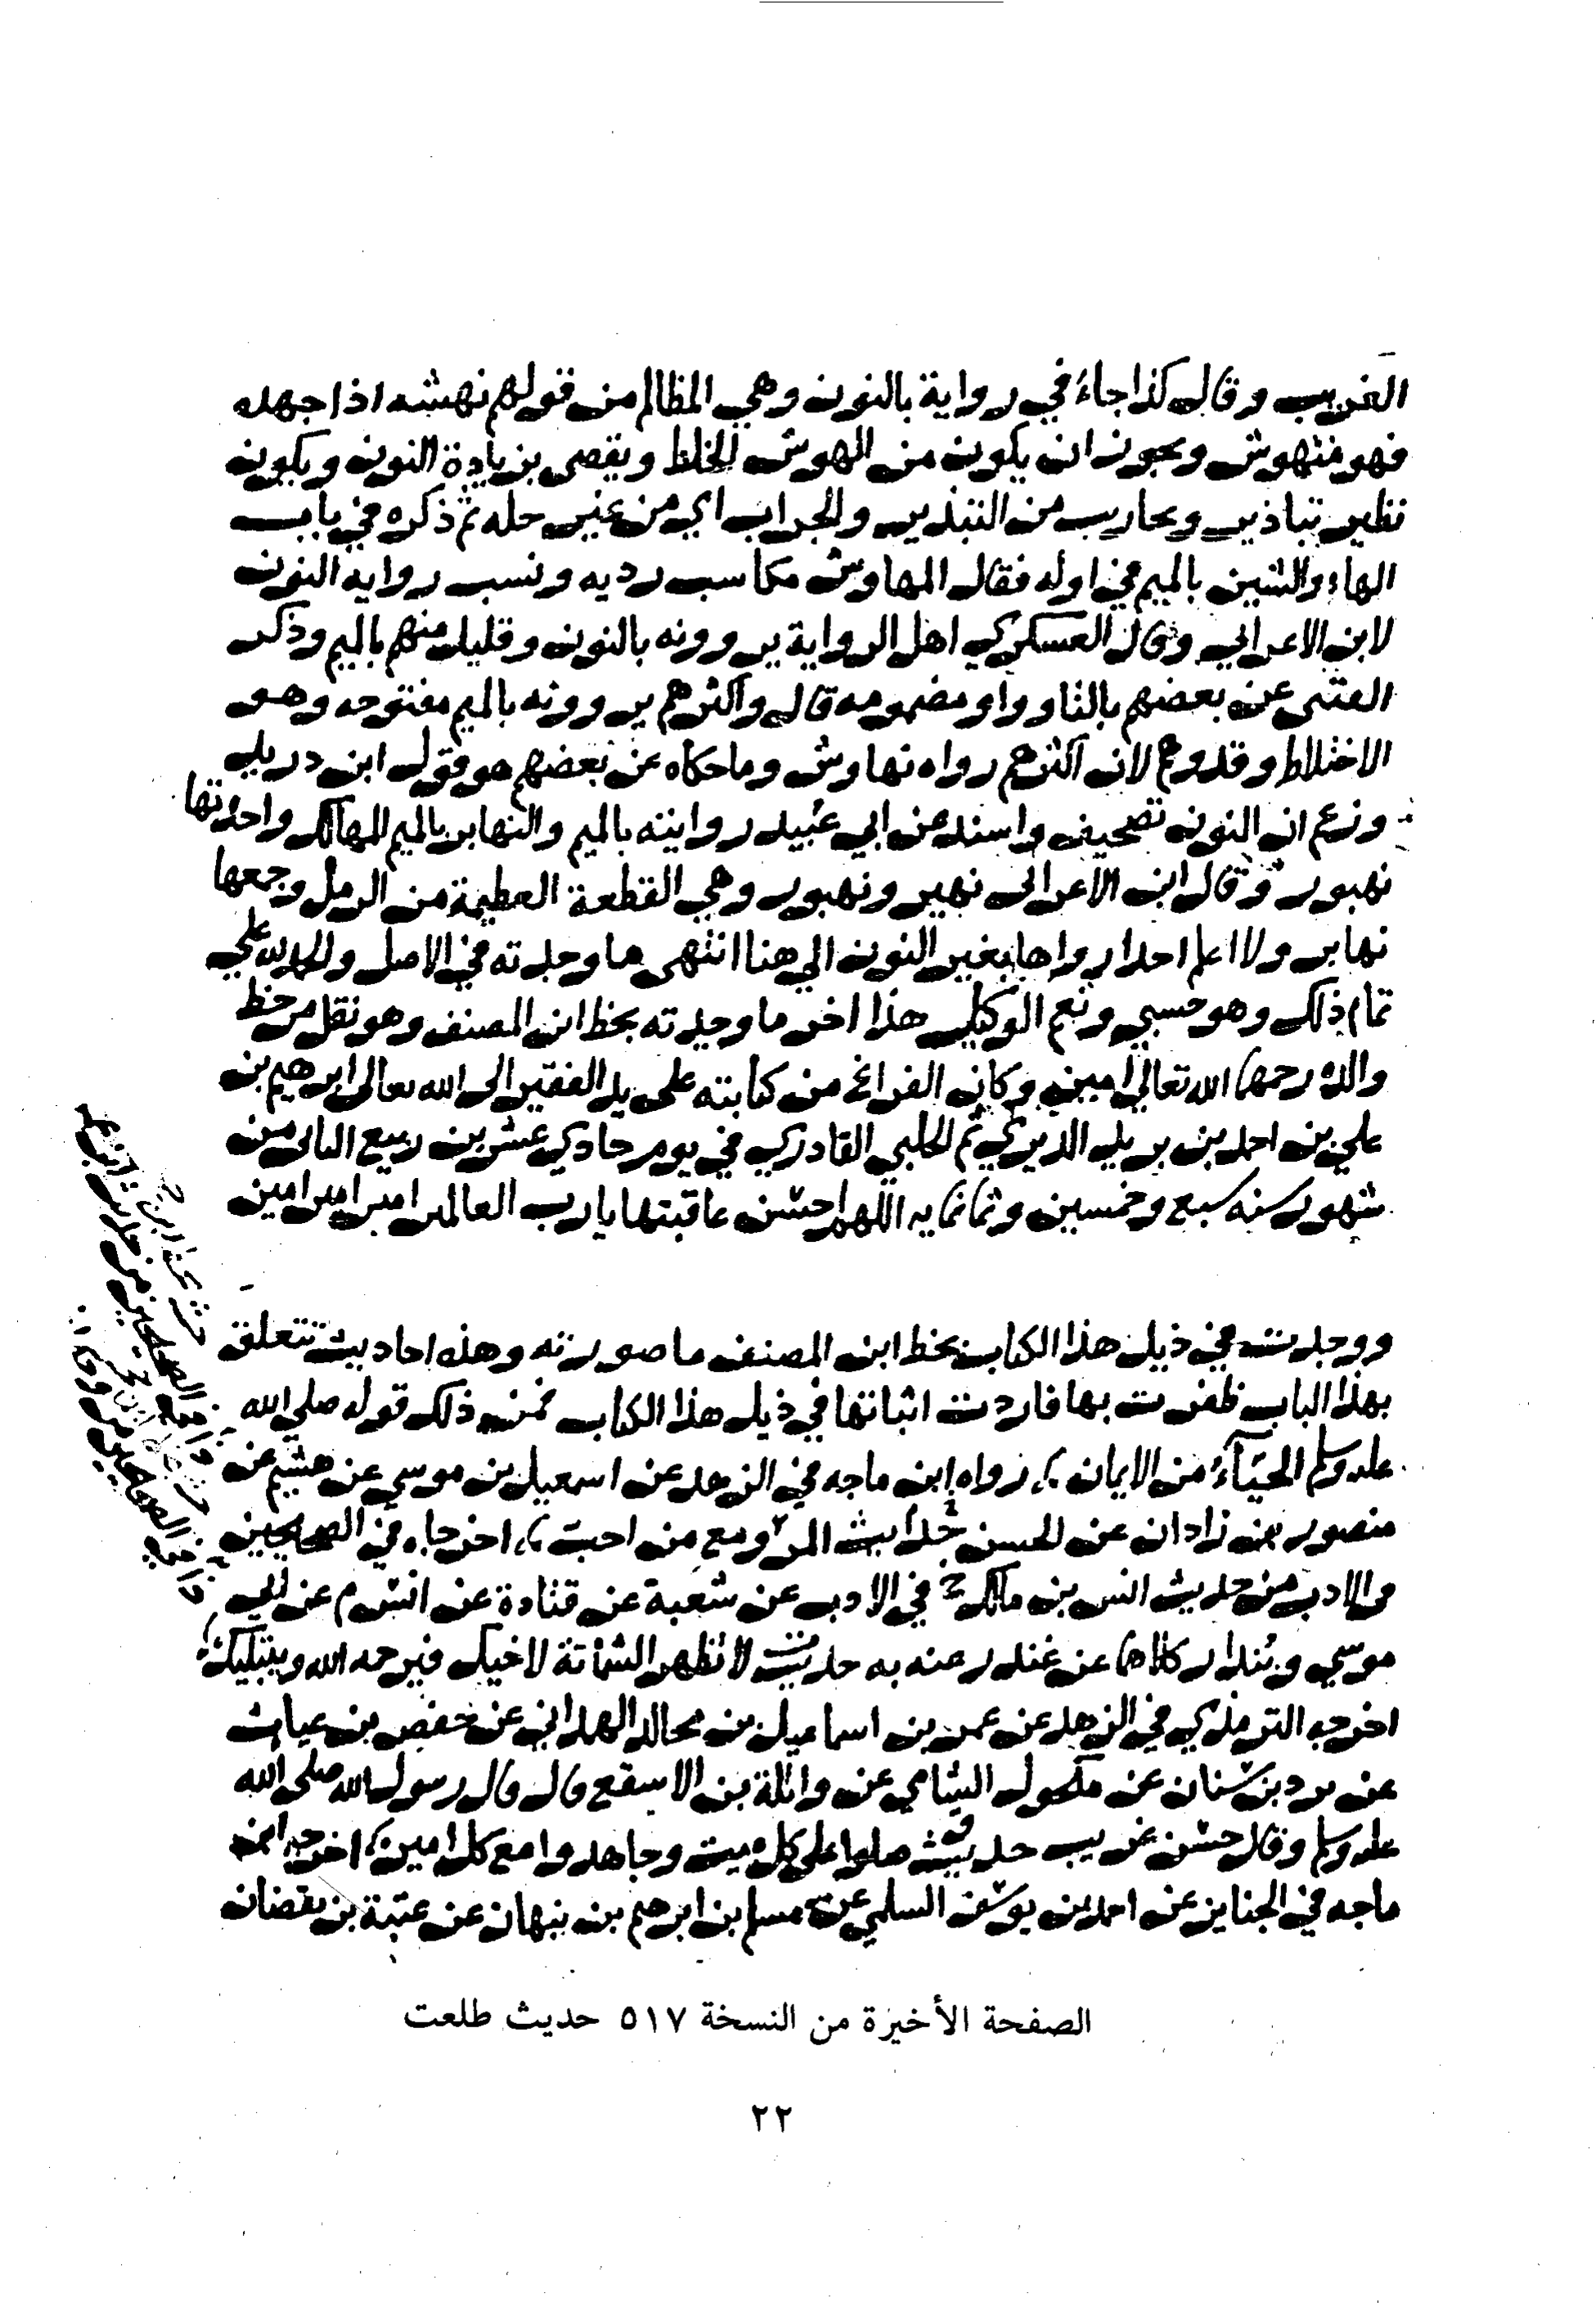 الغريب وقال كذا جاء في رواية بالنون وهي المظالم من قولهم نهشه اذا جهده
فهو منهوش ويجوز ان يكون من الهوش الخلط ويقضى بزيادة النون ويكون
نظير تباذير وتحاريب من التبذير والحراب اي من غير حله ثم ذكره في باب
الهاء والشين بالميم في اوله فقال المهاوش مكاسب رديه ونسب رواية النون
لابن الاعرابي وقال العسكري اهل الرواية يروونه بالنون وقليل منهم بالميم وذكر
عن بعضهم بالتا وواو مضمومه قال واكثرهم يروونه بالميم مفتوحه وهو
الاختلاط وقد وهم لان اكثرهم رواه نهاوش وما حكاه عن بعضهم هو قول ابن دريد
وزعم ان النون تصحيف واسند عن ابي عبيد روايته بالميم والنهابر بالميم المهالك واحدتها
نهبور وقال ابن الاعرابى نهبر ونهبور وهي القطعة العظيمة من الرمل وجمعها
نهابر ولا اعلم احدا رواها بغير النون الي هنا انتهى ما وجدته في الاصل والحمد لله علي
تمام ذلك وهو حسبي ونعم الوكيل هذا اخر ما وجدته بخط ابن المصنف وهو نقل من خط
والده رحمهما الله تعالي امين وكان الفراغ من كتابته على يد الفقير الى الله تعالى ابرهيم بن
علي بن احمد بن بريد الديري ثم الحلبي القادري في يوم حادي عشرين ربيع الثانى من
شهور سنه سبع وخمسين وثمانمايه اللهم احسن عاقبتها يا رب العالمين امين امين امين
ووجدت في ذيل هذا الكتاب بخط ابن المصنف ما صورته وهذه احاديث تتعلق
بهذا الباب ظفرت بها فاردت اثباتها في ذيل هذا الكتاب فمن ذلك قوله صلي الله
عليه وسلم الحيآء من الايمان رواه ابن ماجه في الزهد عن اسمعيل بن موسي عن هشيم عن
منصور بن زادان عن الحسن حديث المرء مع من احبت اخرجاه في الصحيحين
في الادب من حديث انس بن مالك خ في الادب عن شعبة عن قتادة عن انس م عن ابي
موسي وبندار كلاهما عن غندر عنه به حديث لا تظهر الشماتة لاخيك فيرحمه الله ويبتليك
اخرجه الترمذي في الزهد عن عمر بن اسماعيل بن مجالد الهمداني عن حفص بن غياث
عن برد بن سنان عن مكحول الشامي عن واثلة بن الاسقع قال قال رسول الله صلى الله
عليه وسلم وقال حسن غريب حديث صلوا على كل ميت وجاهدوا مع كل امير اخرجه ابن
ماجه في الجنايز عن احمد بن يوسف السلمي عن مسلم بن ابرهيم بن نبهان عن عتبة بن يقضان
الصفحة الأخيرة من النسخة ٥١٧ حديث طلعت
٢٢